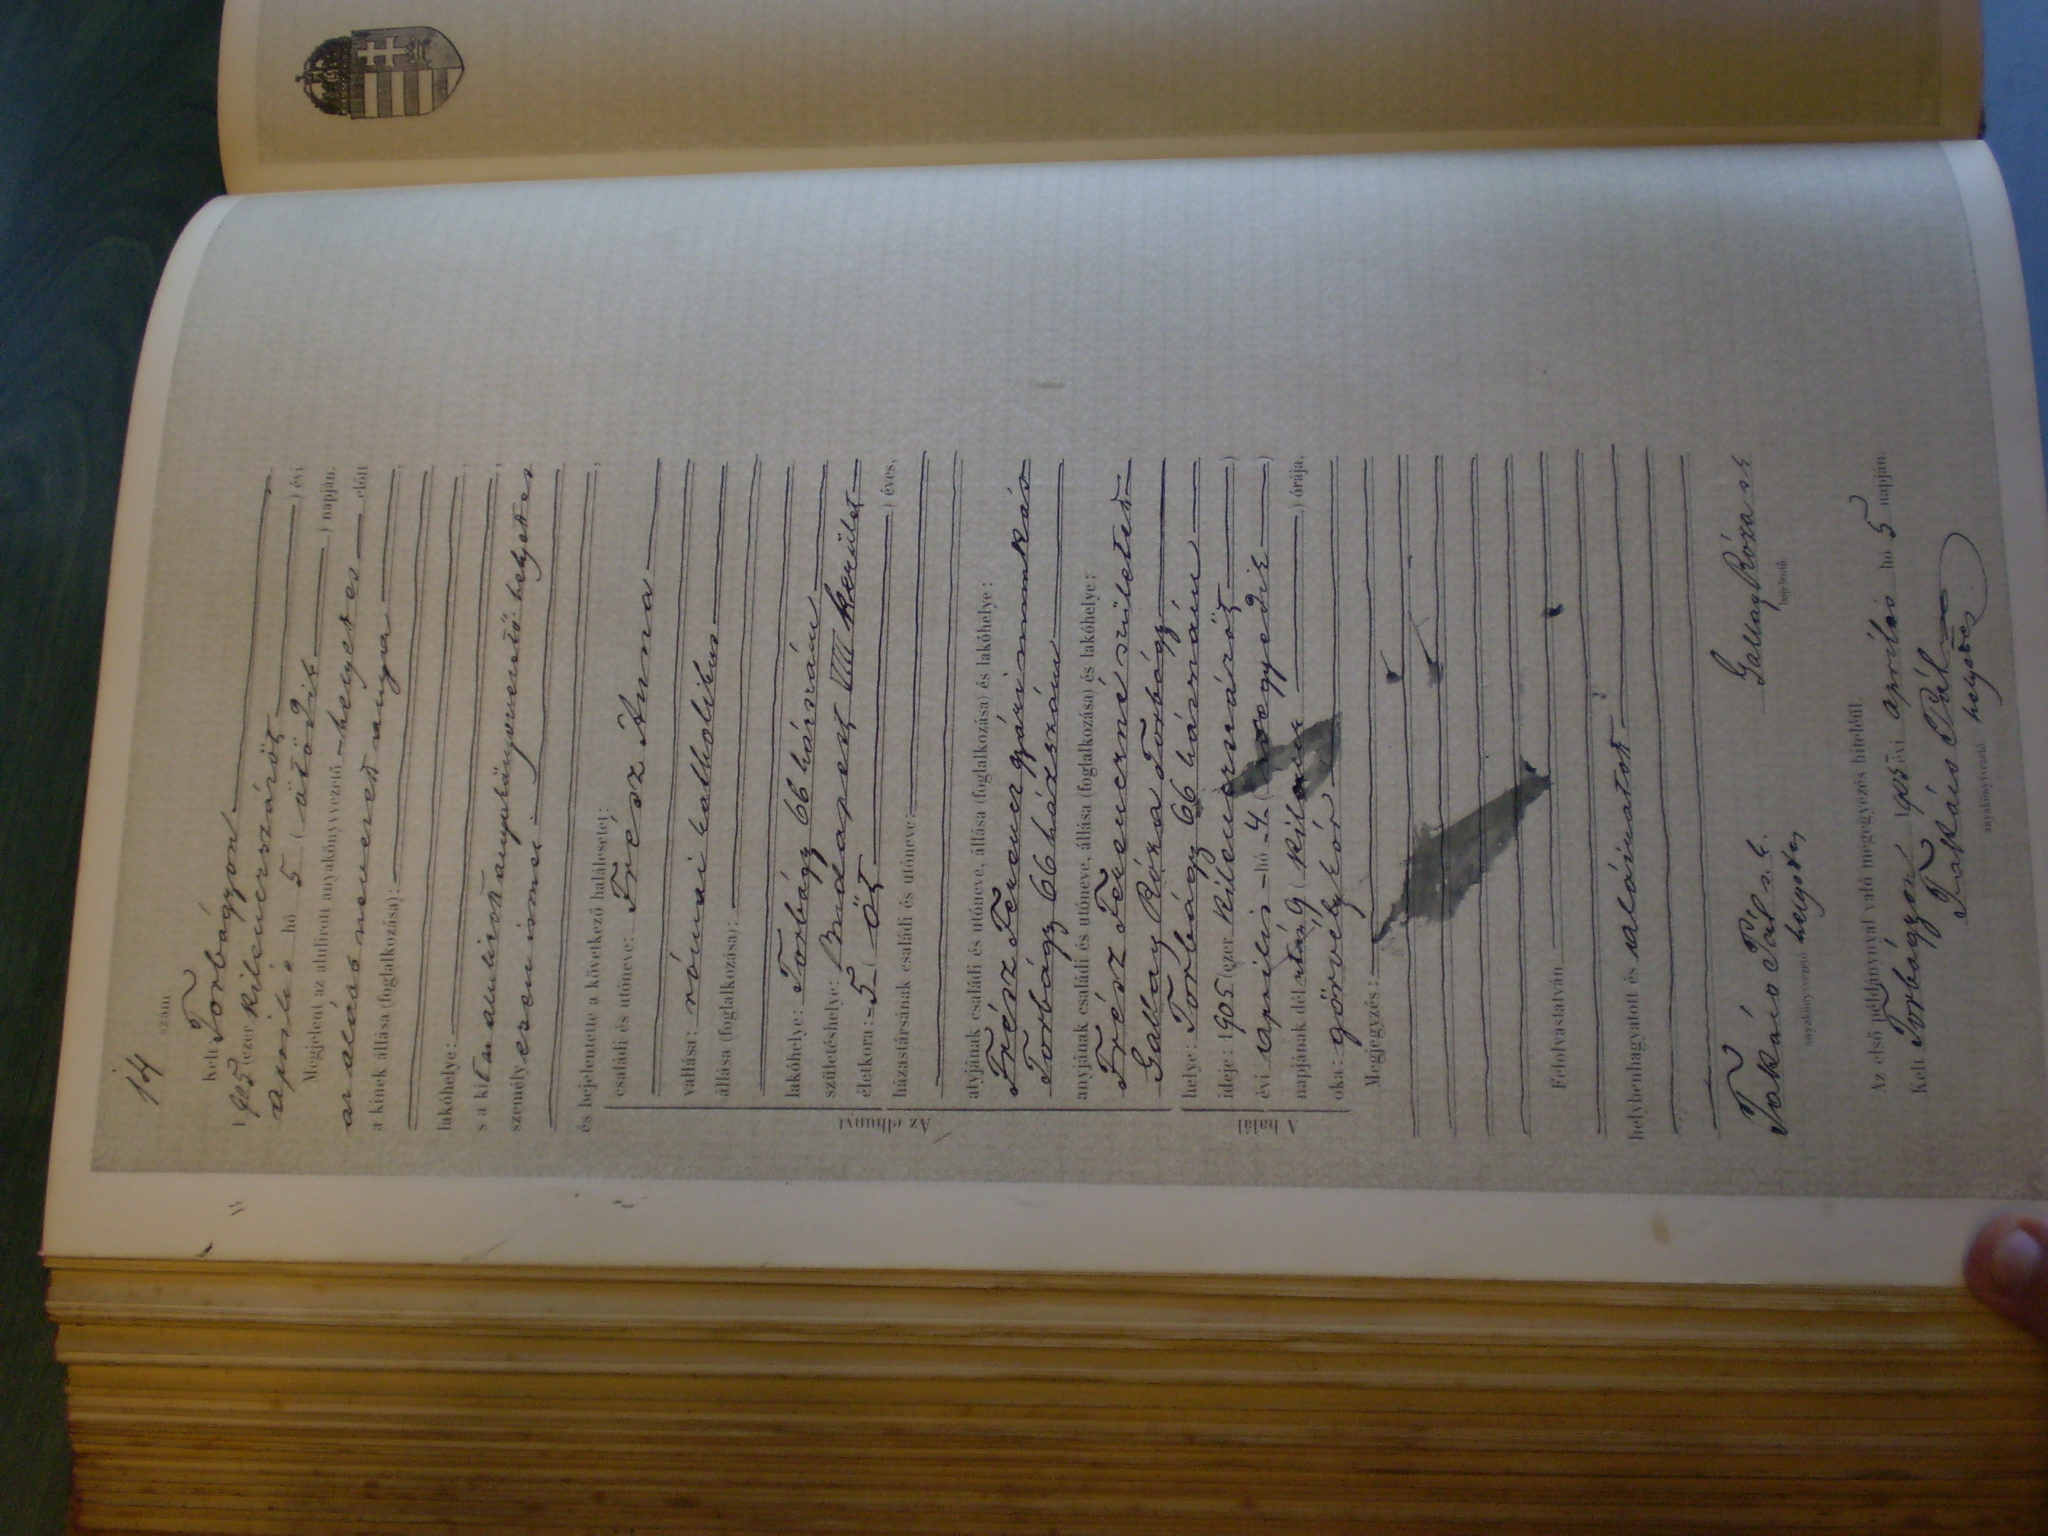 14
szám
Kelt Torbágyon
1905 (ezer kilenczszázöt ) évi
április hó 5 ( ötödik ) napján.
Megjelent az alulírott anyakönyvvezető-helyettes előtt
az alább nevezett anya
a kinek állása (foglalkozása):
lakóhelye:
s a kit az alulirott anyakönyvvezető-helyettes
személyesen ismer
és bejelentette a következő halálesetet:
Az elhunyt
családi és utóneve: Trész Anna
vallása: római katholikus
állása (foglalkozása):
lakóhelye: Torbágy 66 házszám
születéshelye: Budapest VIII kerület
életkora: 5 ( öt ) éves,
házastársának családi és utóneve:
atyjának családi és utóneve, állása (foglalkozása) és lakóhelye:
Trész Ferencz gyári munkás
Torbágy 66 házszám
anyjának családi és utóneve, állása (foglalkozása) és lakóhelye:
Trész Ferenczné született
Gallay Róza Torbágy
A halál
helye: Torbágy 66 házszám
ideje: 1905 (ezer kilenczszázöt )
évi április hó 4. ( negyedik )
napjának dél után 9 ( kilencz ) órája,
oka: görvélykór
Megjegyzés:
Felolvastatván
helybenhagyatott és aláiratott
Takáts Pál s. k.
anyakönyvvezető helyettes
Gallay Róza s k
bejelentő.
Az első példánnyal való megegyezés hiteléül.
Kelt Torbágyon 1905 évi április hó 5 napján.
Takáts Pál
anyakönyvvezető. helyettes.